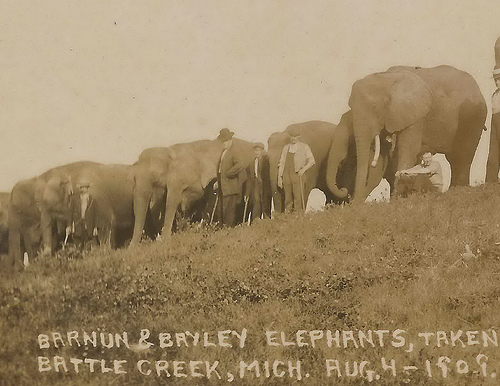 BARNUN & BAYLEY ELEPHANTS, TAKEN
BATTLE CREEK, MICH. AUG. 4-1909.